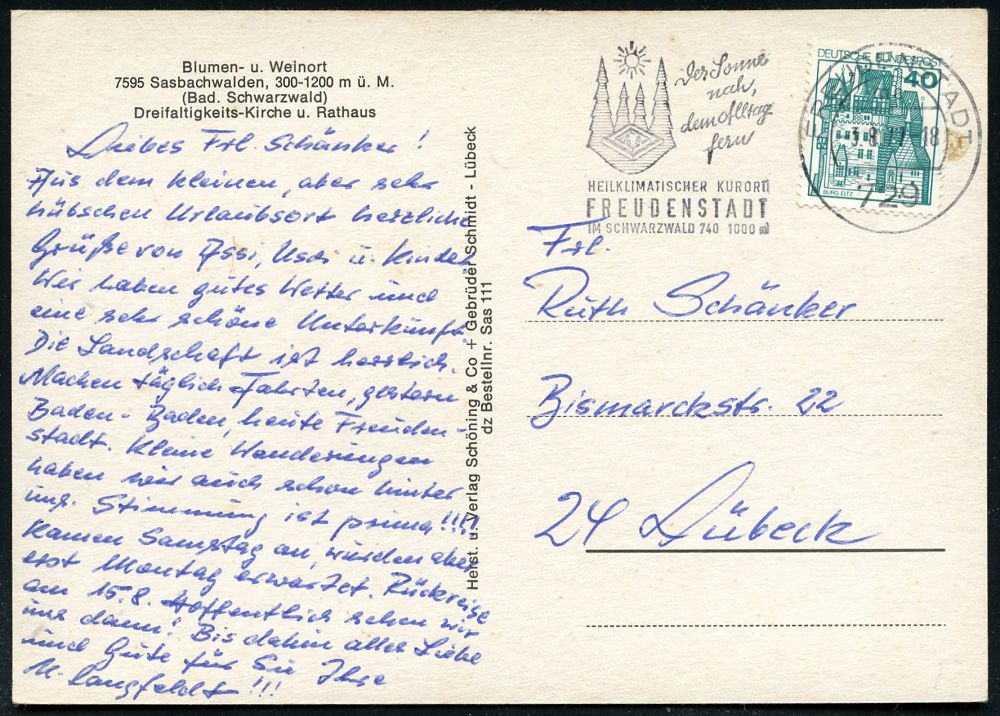 Blumen- u. Weinort
7595 Sasbachwalden, 300-1200 m ü. M.
(Bad. Schwarzwald)
Dreifaltigkeits-Kirche u. Rathaus
Liebes Frl. Schänker!
Aus dem kleinen, aber sehr
hübschen Urlaubsort herzliche
Grüße von Assi, Uschi u. Kinder
Wir haben gutes Wetter und
eine sehr schöne Unterkunft.
Die Landschaft ist herrlich.
Machen täglich Fahrten, gestern
Baden-Baden, heute Freuden-
stadt. Kleine Wanderungen
haben wir auch schon hinter
uns. Stimmung ist prima!!!!
Kamen Samstag an, wurden aber
erst Montag erwartet. Rückreise
am 15.8. Hoffentlich sehen wir
uns dann! Bis dahin alles Liebe
und Gute für Sie Ihre
M. Langfeldt!!!
Herst. u. Verlag Schöning & Co + Gebrüder Schmidt - Lübeck
dz Bestellnr. Sas 111
Der Sonne
nah,
dem Alltag
fern
HEILKLIMATISCHER KURORT
FREUDENSTADT
IM SCHWARZWALD 740 1000 m
DEUTSCHE BUNDESPOST
40
BURG ELTZ
FREUDENSTADT
-3.8.77-18
729
Frl.
Ruth Schänker
Bismarckstr. 22
24 Lübeck